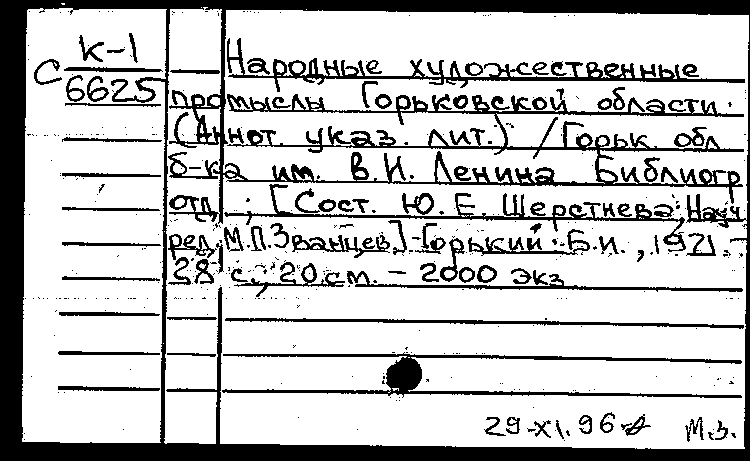 С К-1
6625
Народные художественные
промыслы Горьковской области.
(Аннот. указ. лит.) / Горьк. обл
б-ка им. В.И. Ленина. Библиогр
отд. ; [Сост. Ю.Е. Шерстнева; Науч
ред. М.П. Званцев.] - Горький: Б.и., 1971. -
28 с.; 20 см. - 2000 экз
29-XI. 96 М.З.